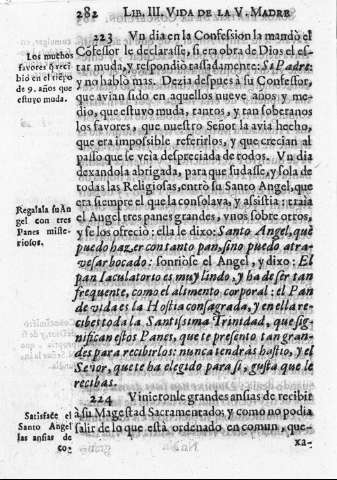 282 LIB. III. VIDA DE LA V. MADRE
223 Vn dia en la Confession la mandò el
Cõfessor le declarasse, si era obra de Dios el es-
tar muda, y respondiò tassadamente: Si Padre;
y no hablò mas. Dezia despues à su Confessor,
que avian sido en aquellos nueve años y me-
dio, que estuvo muda, tantos, y tan soberanos
los favores, que nuestro Señor la avia hecho,
que era impossible referirlos, y que crecian al
passo que se veia despreciada de todos. Vn dia
dexandola abrigada, para que sudasse, y sola de
todas las Religiosas, entrò su Santo Angel, que
era siempre el que la consolava, y assistia: traia
el Angel tres panes grandes, vnos sobre otros,
y se los ofreciò: ella le dixo: Santo Angel, què
puedo hazer con tanto pan, sino puedo atra-
vesar bocado: sonriòse el Angel, y dixo: El
pan Iaculatorio es muy lindo, y ha de ser tan
frequente, como el alimento corporal: el Pan
de vida es la Hostia consagrada, y en ella re-
cibes toda la Santissima Trinidad, que sig-
nifican estos Panes, que te presento tan gran-
des para recibirlos: nunca tendràs hastio, y el
Señor, que te ha elegido para sì, gusta que le
recibas.
224 Vinieronle grandes ansias de recibir
à su Magestad Sacramentado; y como no podia
salir de lo que està ordenado en comun, que-
xa-
Los muchos
favores q̃ reci
biò en el tiẽpo
de 9. años que
estuvo muda.
Regalala su Ãn
gel con tres
Panes miste-
riosos.
Satisface el
Santo Angel
las ansias de
co-